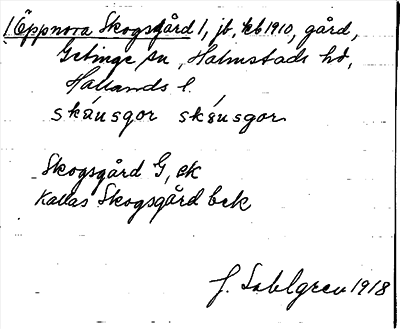 (Öppnora Skogsgård 1, jb, kb 1910, gård,
Getinge sn, Halmstads hd,
Hallands l.
skäusgor skäusgor
Skogsgård G, ek
Kallas Skogsgård bek
J. Sahlgren 1918